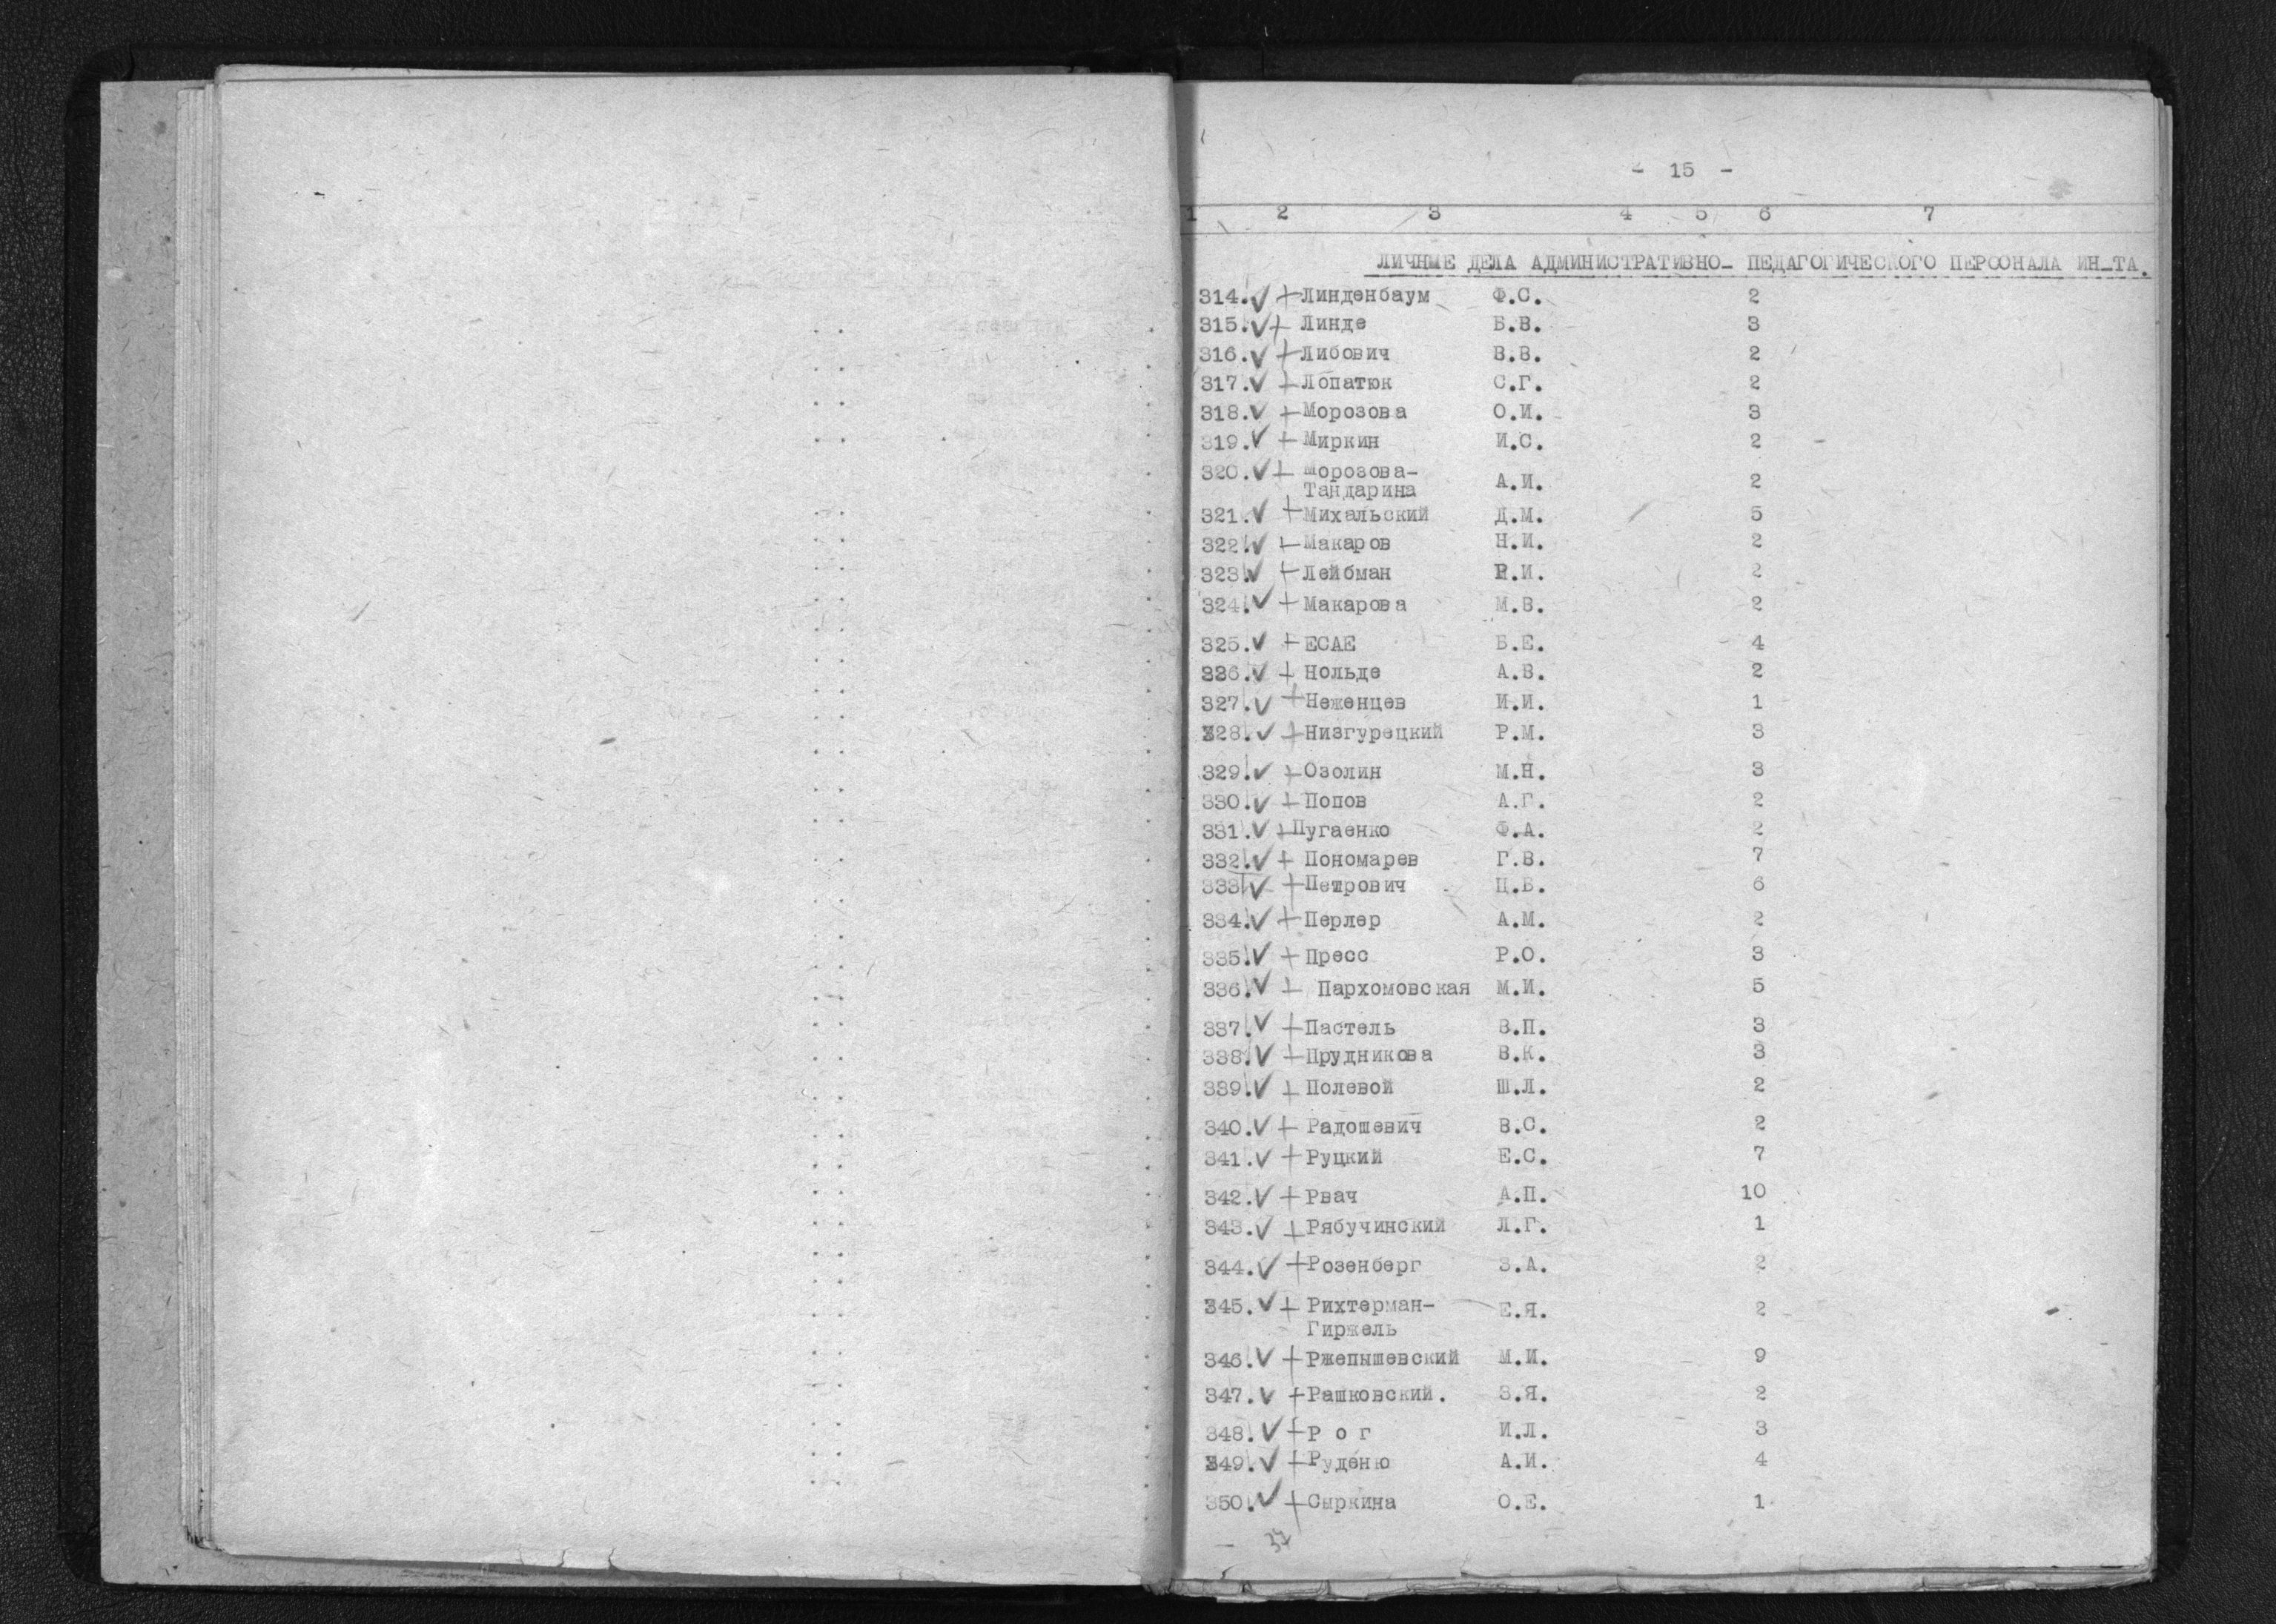 - 15 -
1 2 3 4 5 6 7
ЛИЧНЫЕ ДЕЛА АДМИНИСТРАТИВНО- ПЕДАГОГИЧЕСКОГО ПЕРСОНАЛА ИН-ТА.
314. ✓ + Линденбаум Ф.С. 2
315. ✓ + Линде Б.В. 3
316. ✓ + Либович В.В. 2
317. ✓ + Лопатюк С.Г. 2
318. ✓ + Морозова О.И. 3
319. ✓ + Миркин И.С. 2
320. ✓ + Морозова-
Тандарина А.И. 2
321. ✓ + Михальский Д.М. 5
322. ✓ + Макаров Н.И. 2
323. ✓ + Лейбман И. 2
324. ✓ + Макарова М.В. 2
325. ✓ + ЕСАЕ Б.Е. 4
326. ✓ + Нольде А.В. 2
327. ✓ + Неженцев И.И. 1
328. ✓ + Низгурецкий Р.М. 3
329. ✓ + Озолин М.Н. 3
330. ✓ + Попов А.Г. 2
331. ✓ + Пугаенко Ф.А. 2
332. ✓ + Пономарев Г.В. 7
333. ✓ + Петрович Ц.Б. 6
334. ✓ + Перлер А.М. 2
335. ✓ + Пресс Р.О. 3
336. ✓ + Пархомовская М.И. 5
337. ✓ + Пастель В.П. 3
338. ✓ + Прудникова В.К. 3
339. ✓ + Полевой Ш.Л. 2
340. ✓ + Радошевич В.С. 2
341. ✓ + Руцкий Е.С. 7
342. ✓ + Рвач А.П. 10
343. ✓ + Рябучинский Л.Г. 1
344. ✓ + Розенберг З.А. 2
345. ✓ + Рихтерман- Е.Я. 2
Гиржель
346. ✓ + Ржепышевский М.И. 9
347. ✓ + Рашковский. З.Я. 2
348. ✓ + Р о г И.Л. 3
349. ✓ + Руденко А.И. 4
350. ✓ + Сыркина О.Е. 1
37